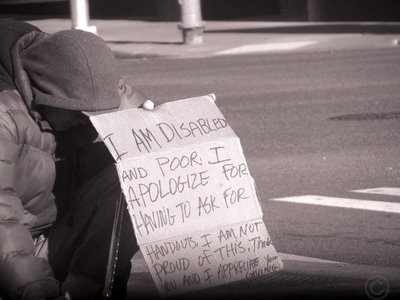 I AM DISABLED
AND POOR. I
APOLOGIZE FOR
HAVING TO ASK FOR
HANDOUTS. I AM NOT
PROUD OF THIS. THANK
YOU AND I APPRECIATE YOUR
©